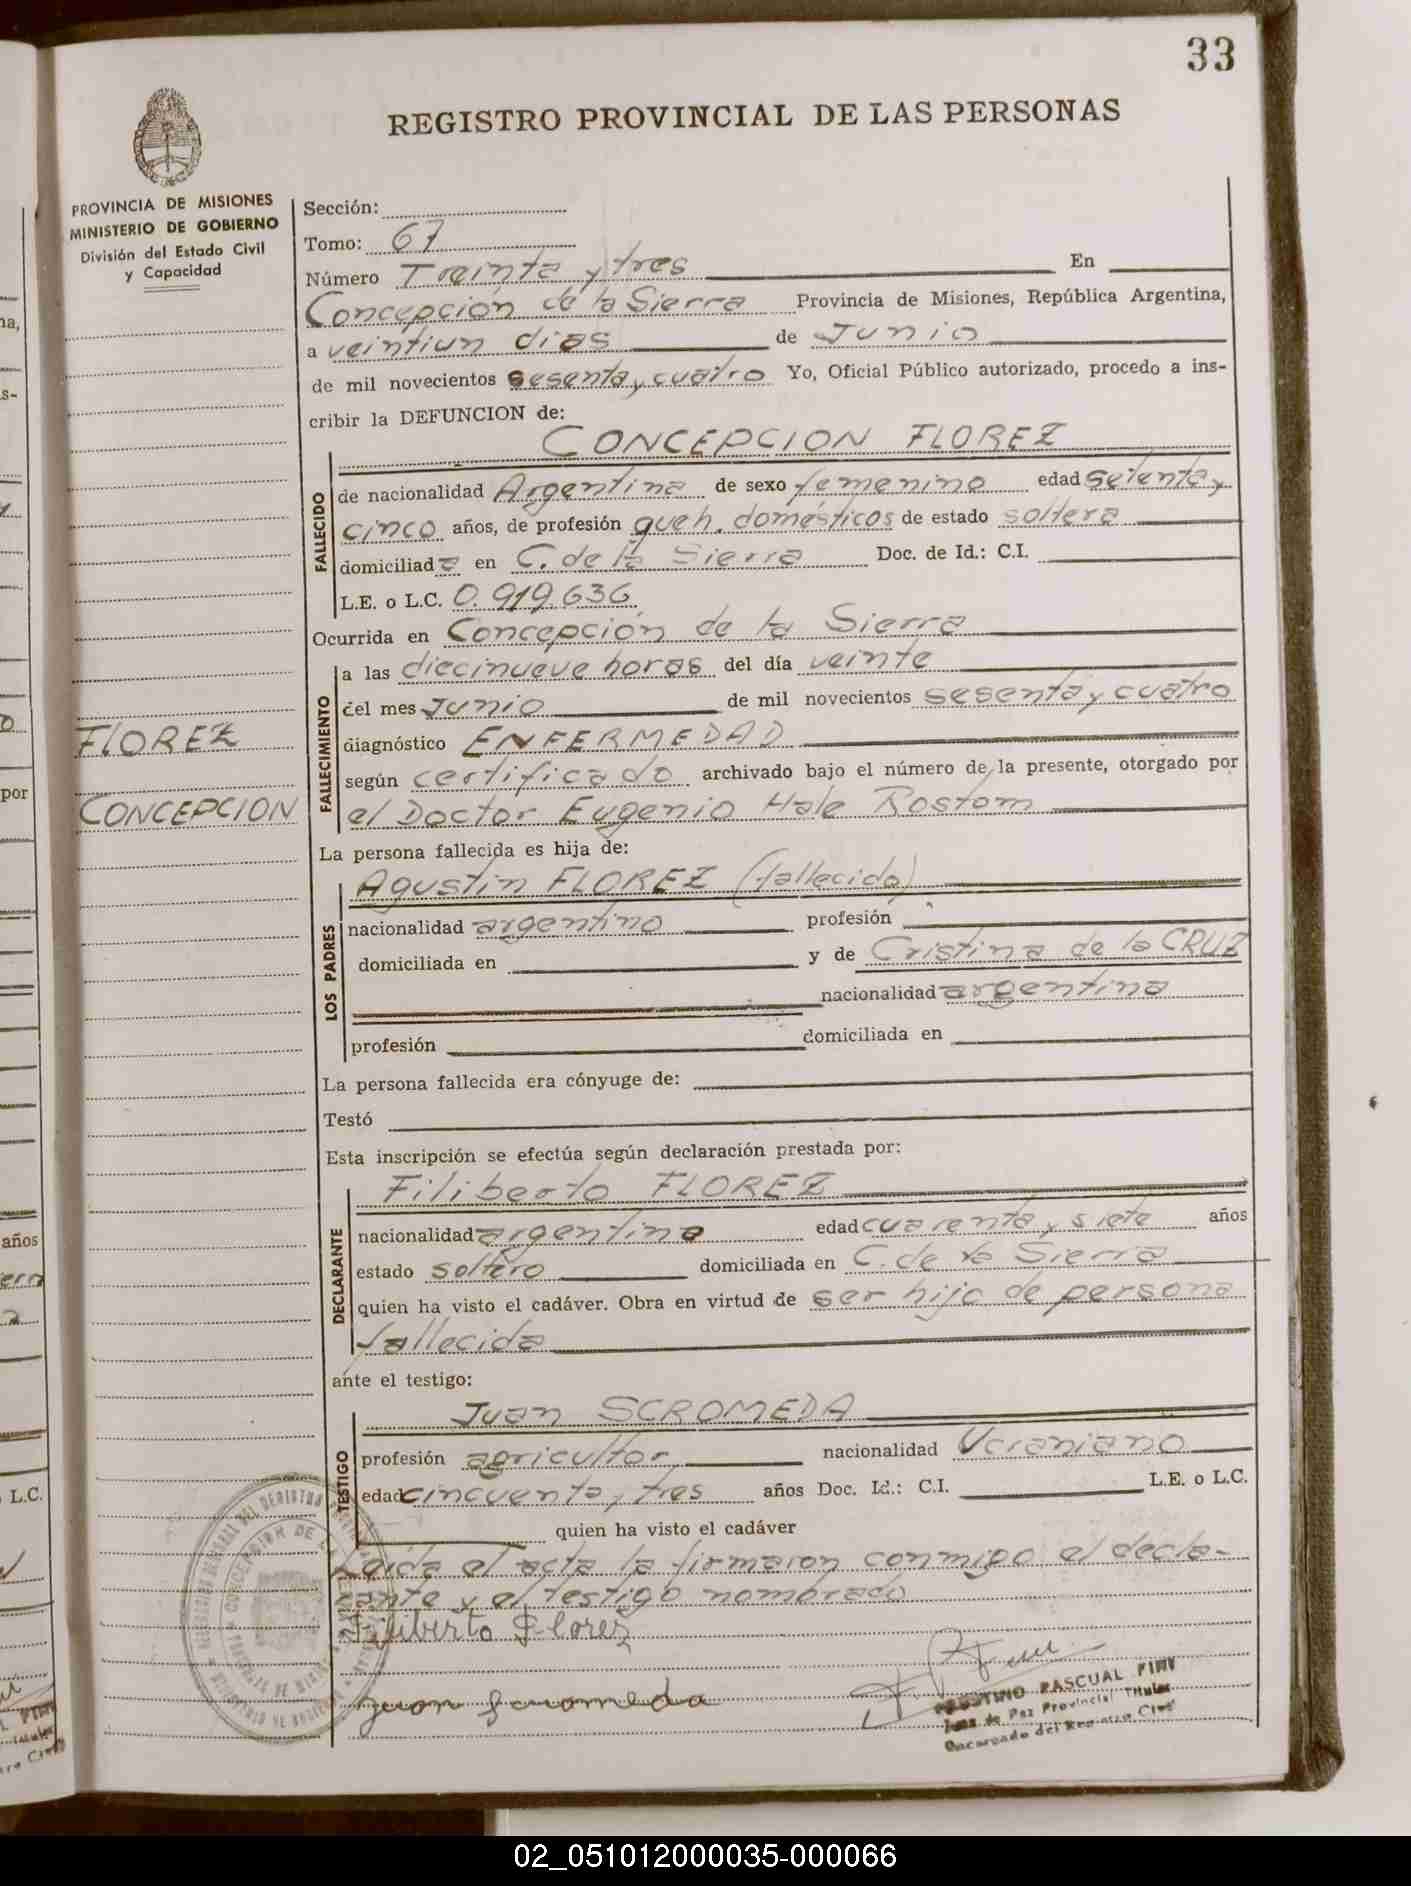 33
REGISTRO PROVINCIAL DE LAS PERSONAS
PROVINCIA DE MISIONES
MINISTERIO DE GOBIERNO
División del Estado Civil
y Capacidad
Sección:
Tomo: 67
Número Treinta y tres En
Concepción de la Sierra Provincia de Misiones, República Argentina,
a veintiun dias de Junio
de mil novecientos sesenta y cuatro Yo, Oficial Público autorizado, procedo a ins-
cribir la DEFUNCION de:
CONCEPCION FLOREZ
FALLECIDO
de nacionalidad Argentina de sexo femenino edad setenta y
cinco años, de profesión queh. domésticos de estado soltera
domiciliada en C. de la Sierra Doc. de Id.: C.I.
L.E. o L.C. 0.919.636
Ocurrida en Concepción de la Sierra
FALLECIMIENTO
a las diecinueve horas del día veinte
del mes Junio de mil novecientos sesenta y cuatro
diagnóstico ENFERMEDAD
según certificado archivado bajo el número de la presente, otorgado por
el Doctor Eugenio Hale Rostom
FLOREZ
CONCEPCION
La persona fallecida es hija de:
LOS PADRES
Agustin FLOREZ (fallecido)
nacionalidad argentino profesión
domiciliada en y de Cristina de la CRUZ
nacionalidad argentina
profesión domiciliada en
La persona fallecida era cónyuge de:
Testó
Esta inscripción se efectúa según declaración prestada por:
DECLARANTE
Filiberto FLOREZ
nacionalidad argentino edad cuarenta y siete años
estado soltero domiciliada en C. de la Sierra
quien ha visto el cadáver. Obra en virtud de ser hijo de persona
fallecida
ante el testigo:
TESTIGO
Juan SCROMEDA
profesión agricultor nacionalidad Ucraniano
edad cincuenta y tres años Doc. Id.: C.I. L.E. o L.C.
quien ha visto el cadáver
Leida el acta la firmaron conmigo el decla-
rante y el testigo nombrado
Filiberto Florez
Juan Scromeda
PASCUAL
Juez de Paz Provincial Titular
Encargado del Registro Civil
02_051012000035-000066